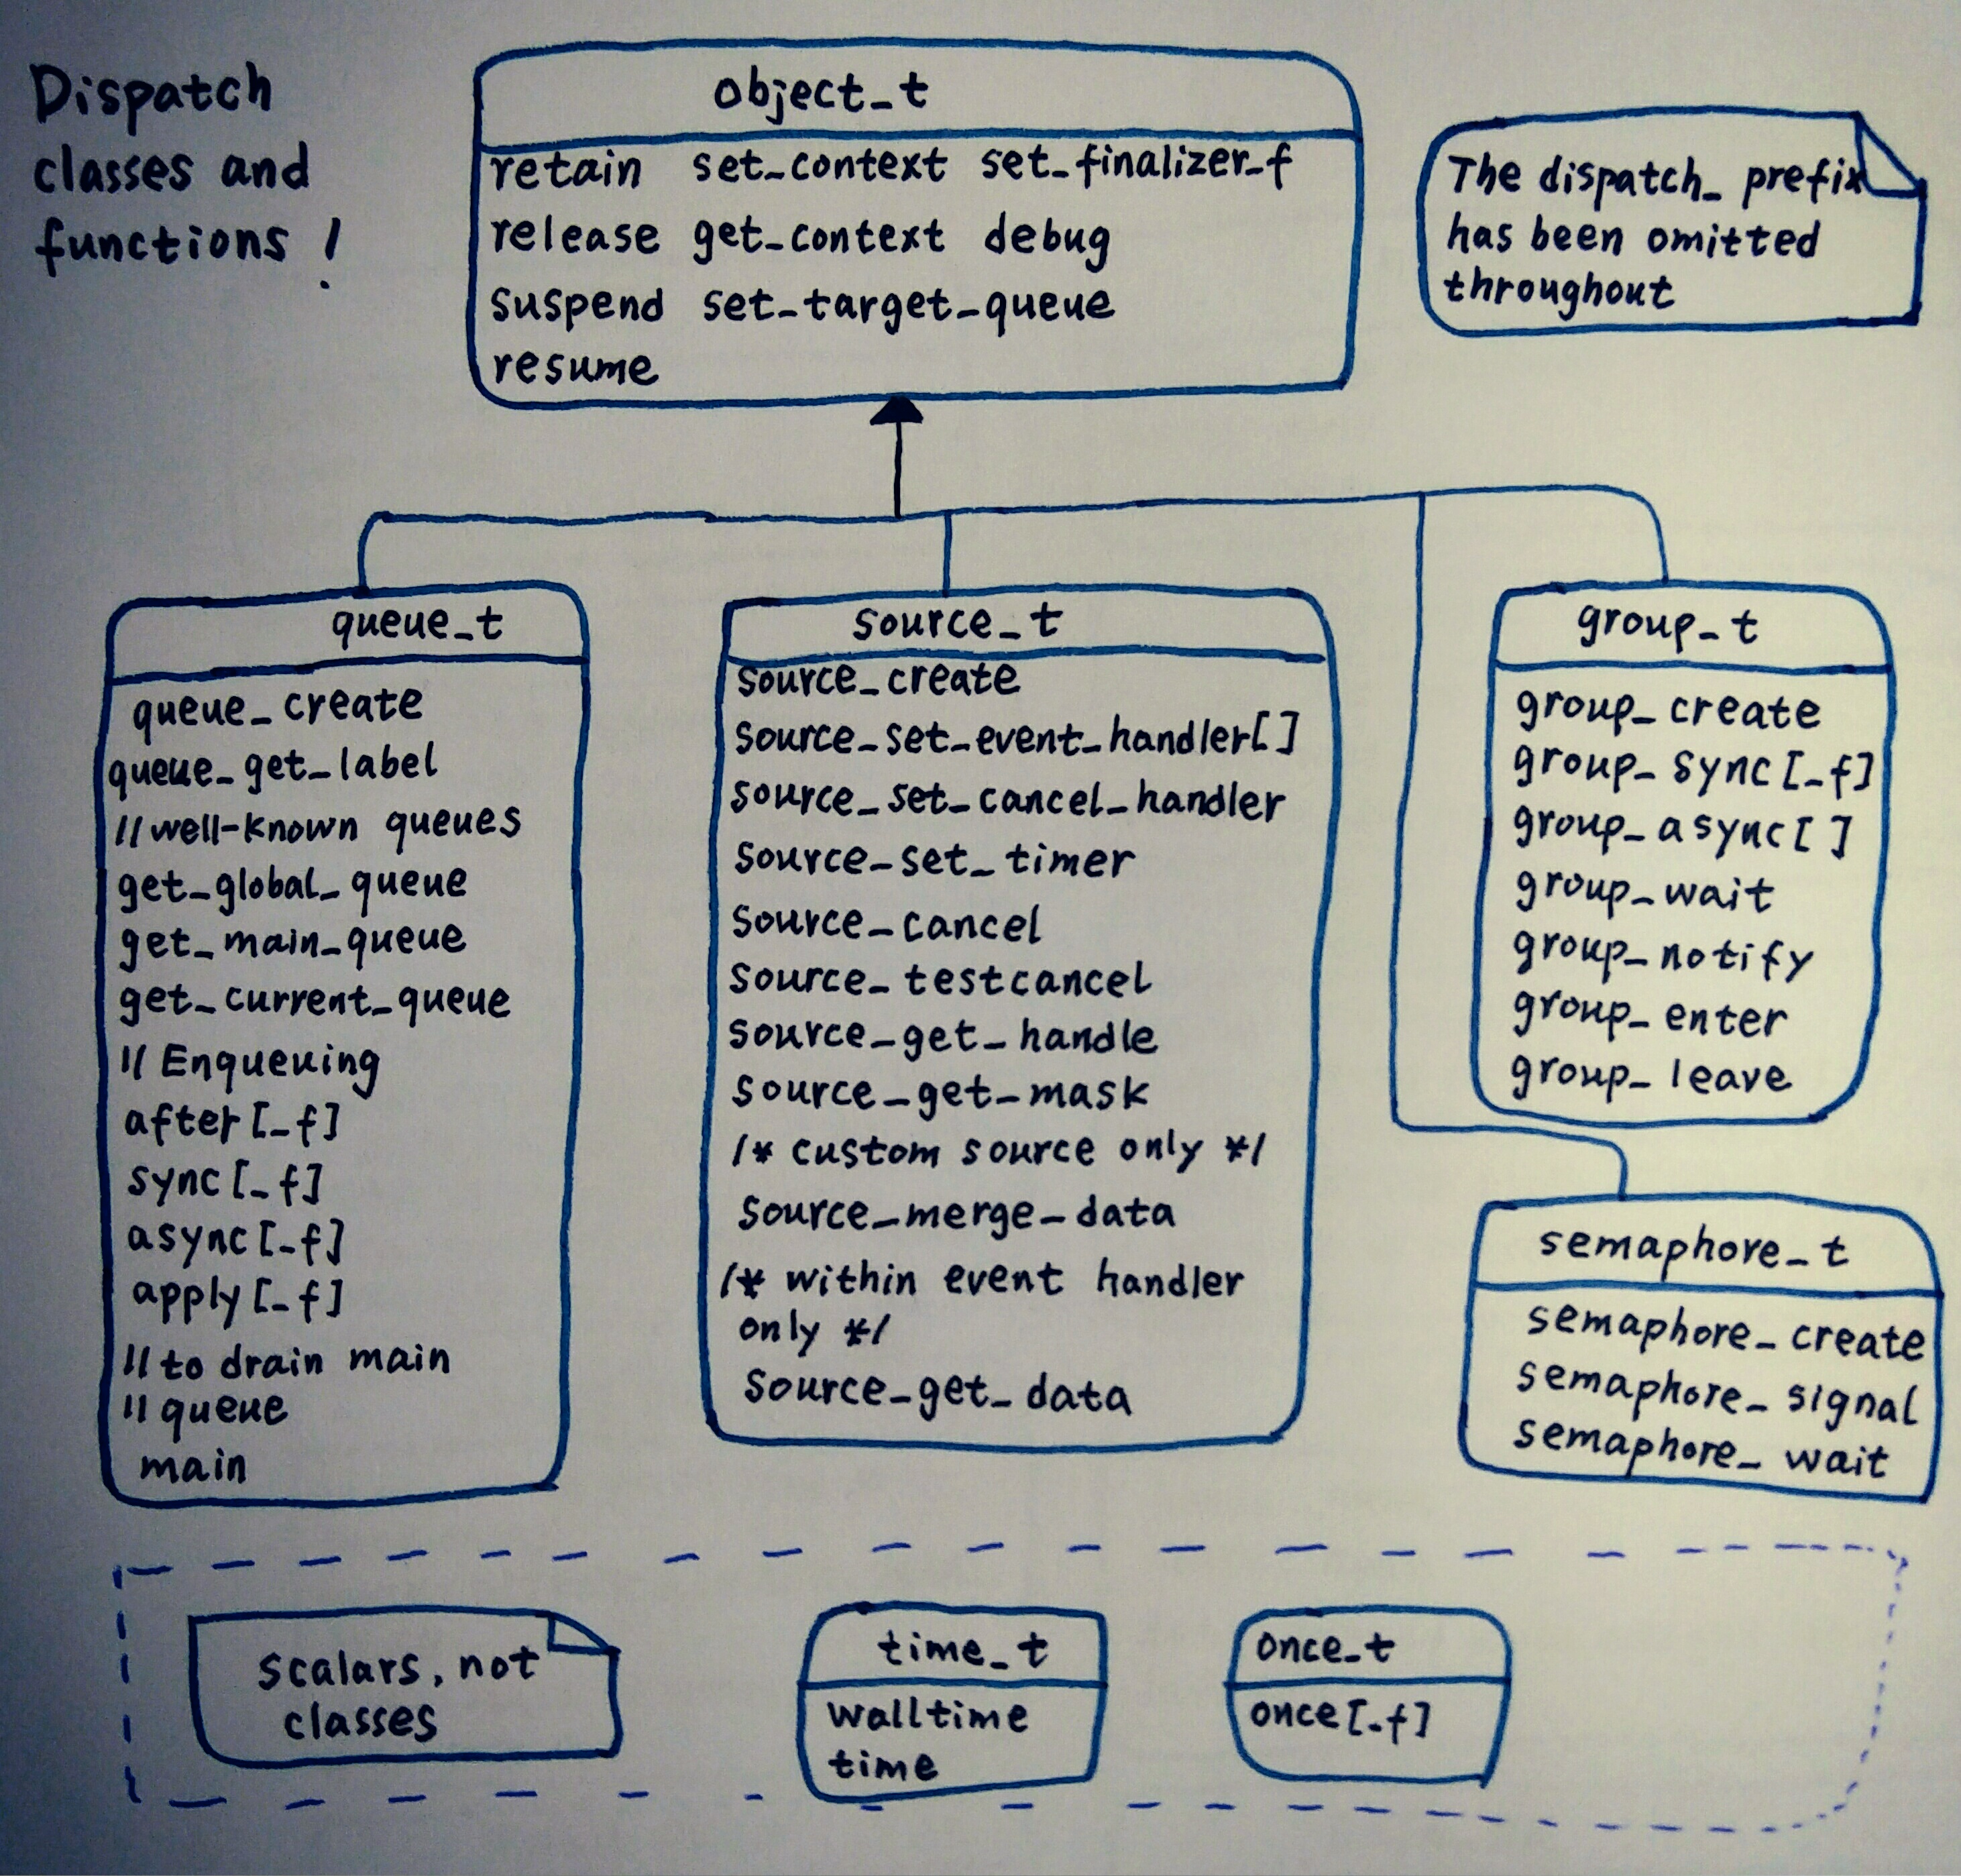 Dispatch
classes and
functions !
object_t
retain set_context set_finalizer_f
release get_context debug
suspend set_target_queue
resume
The dispatch_ prefix
has been omitted
throughout
queue_t
queue_create
queue_get_label
//well-known queues
get_global_queue
get_main_queue
get_current_queue
// Enqueuing
after[_f]
sync[_f]
async[_f]
apply[_f]
// to drain main
// queue
main
source_t
source_create
source_set_event_handler[]
source_set_cancel_handler
source_set_timer
source_cancel
source_testcancel
source_get_handle
source_get_mask
/* custom source only */
source_merge_data
/* within event handler
only */
source_get_data
group_t
group_create
group_sync[_f]
group_async[ ]
group_wait
group_notify
group_enter
group_leave
semaphore_t
semaphore_create
semaphore_signal
semaphore_wait
scalars, not
classes
time_t
walltime
time
once_t
once[_f]